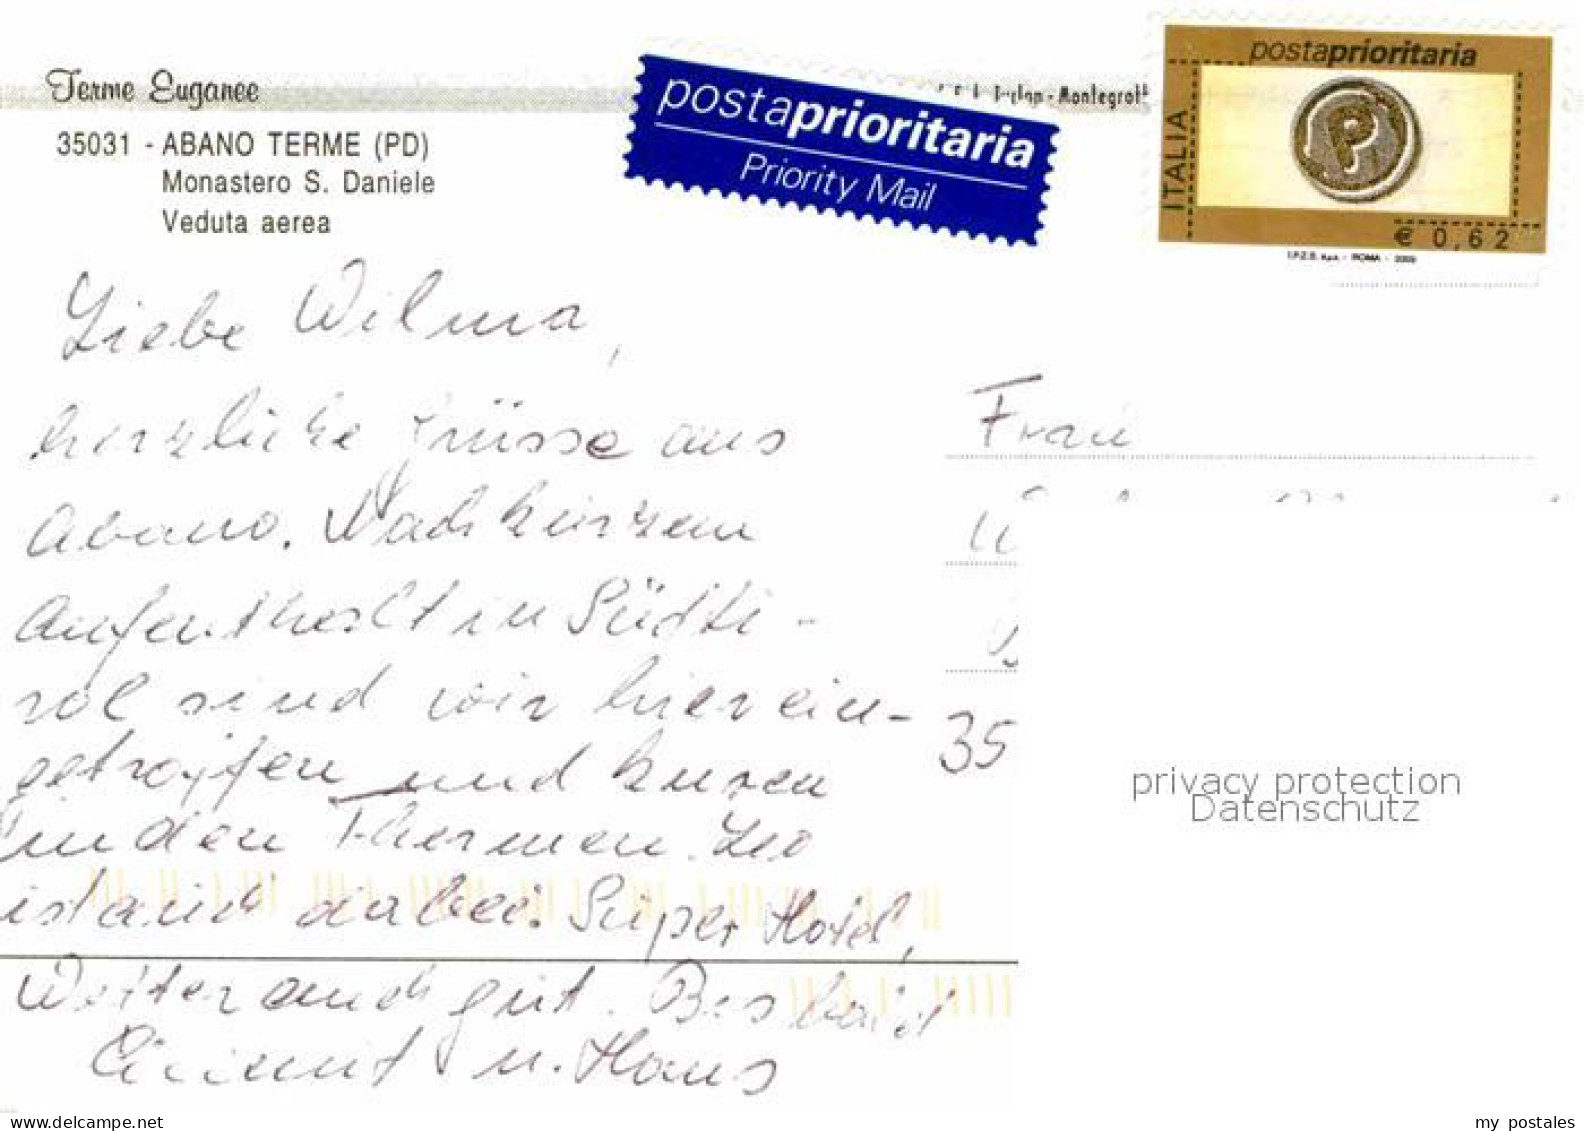 Terme Euganee
35031 - ABANO TERME (PD)
Monastero S. Daniele
Veduta aerea
postaprioritaria
Priority Mail
postaprioritaria
P
ITALIA
€ 0,62
I.P.Z.S. S.p.A. - ROMA -
Liebe Wilma,
herzliche Grüsse aus
Abano. Nach kurzem
Aufenthalt in Südti-
rol sind wir hier ein-
getroffen und kuren
in den Thermen. Leo
ist auch dabei. Super Hotel,
Wetter auch gut. Bis bald
u. Hans
Frau
35
privacy protection
Datenschutz
www.delcampe.net
my_postales